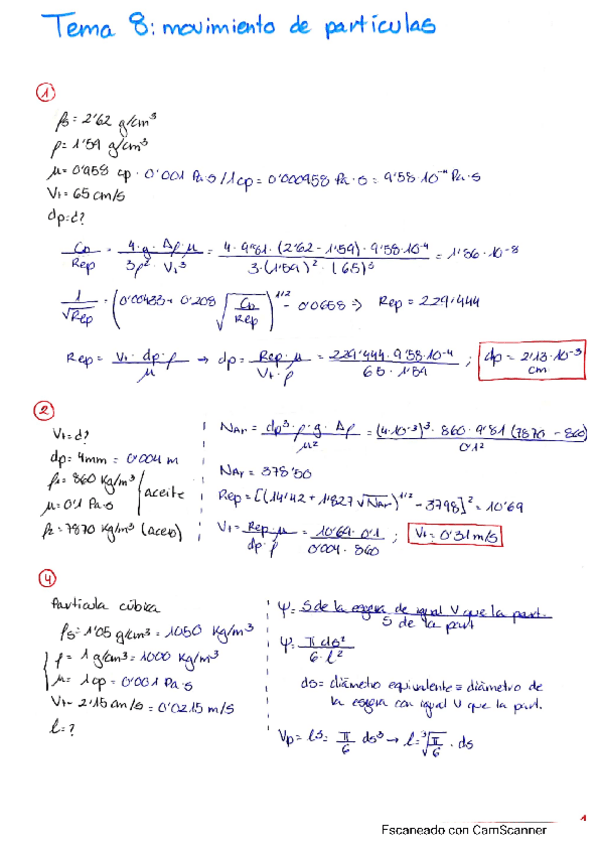 Tema 8: movimiento de partículas
1
ρs = 2'62 g/cm³
ρ = 1'59 g/cm³
μ = 0'958 cp · 0'001 Pa·s/1cp = 0'000958 Pa·s = 9'58·10⁻⁴ Pa·s
Vt = 65 cm/s
dp = ¿?
CD/Rep = 4·g·Δρ·μ / 3ρ²·Vt³ = 4·9'81·(2'62-1'59)·9'58·10⁻⁴ / 3·(1'59)²·(65)³ = 1'86·10⁻⁸
1/√Rep = (0'00433+ 0'208 √CD/Rep)^1/2 - 0'0658 ⇒ Rep = 229'444
Rep = Vt·dp·ρ / μ → dp = Rep·μ / Vt·ρ = 229'444·9'58·10⁻⁴ / 65·1'59 ; dp = 2'13·10⁻³ cm
2
Vt = ¿?
dp = 4mm = 0'004 m
ρ = 860 Kg/m³
μ = 0'1 Pa·s
aceite
ρs = 7870 Kg/m³ (acero)
NAr = dp³·ρ·g·Δρ / μ² = (4·10⁻³)³·860·9'81(7870 - 860) / 0'1²
NAr = 378'50
Rep = [(14'42 + 1'827 √NAr)^1/2 - 3'798]² = 10'69
Vt = Rep·μ / dp·ρ = 10'69·0'1 / 0'004·860 ; Vt = 0'31 m/s
4
Partícula cúbica
ρs = 1'05 g/cm³ = 1050 Kg/m³
ρ = 1 g/cm³ = 1000 Kg/m³
μ = 1cp = 0'001 Pa·s
Vt = 2'15 cm/s = 0'0215 m/s
l = ?
ψ = S de la esfera de igual V que la part. / S de la part
ψ = π ds² / 6·l²
ds = diámetro equivalente ≡ diámetro de
la esfera con igual V que la part.
Vp = l³ = π/6 ds³ → l = ³√π/6 · ds
1
Escaneado con CamScanner